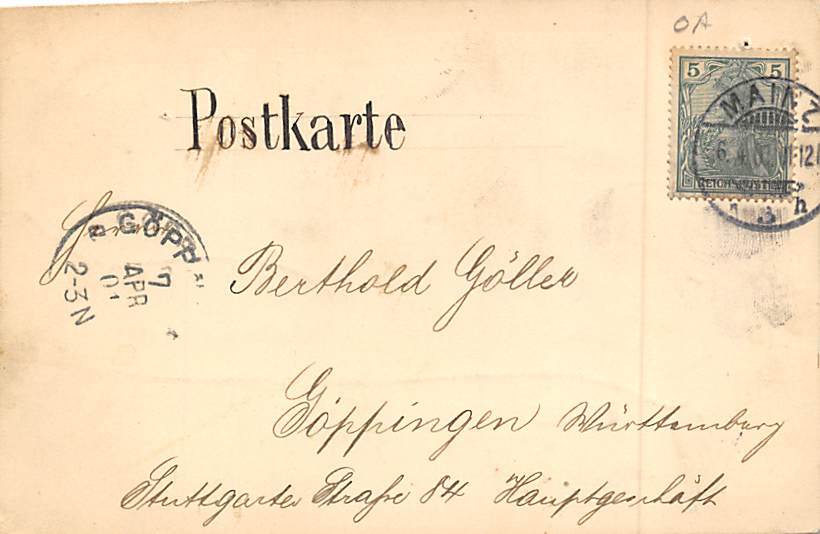 OA
5 5
MAINZ
6.4.
REICHSPOST
Postkarte
Herrn
GÖPP
7
APR
01
2-3N
Berthold Göller
Göppingen Württemburg
Stuttgarter Straße 84 Hauptgeschäft